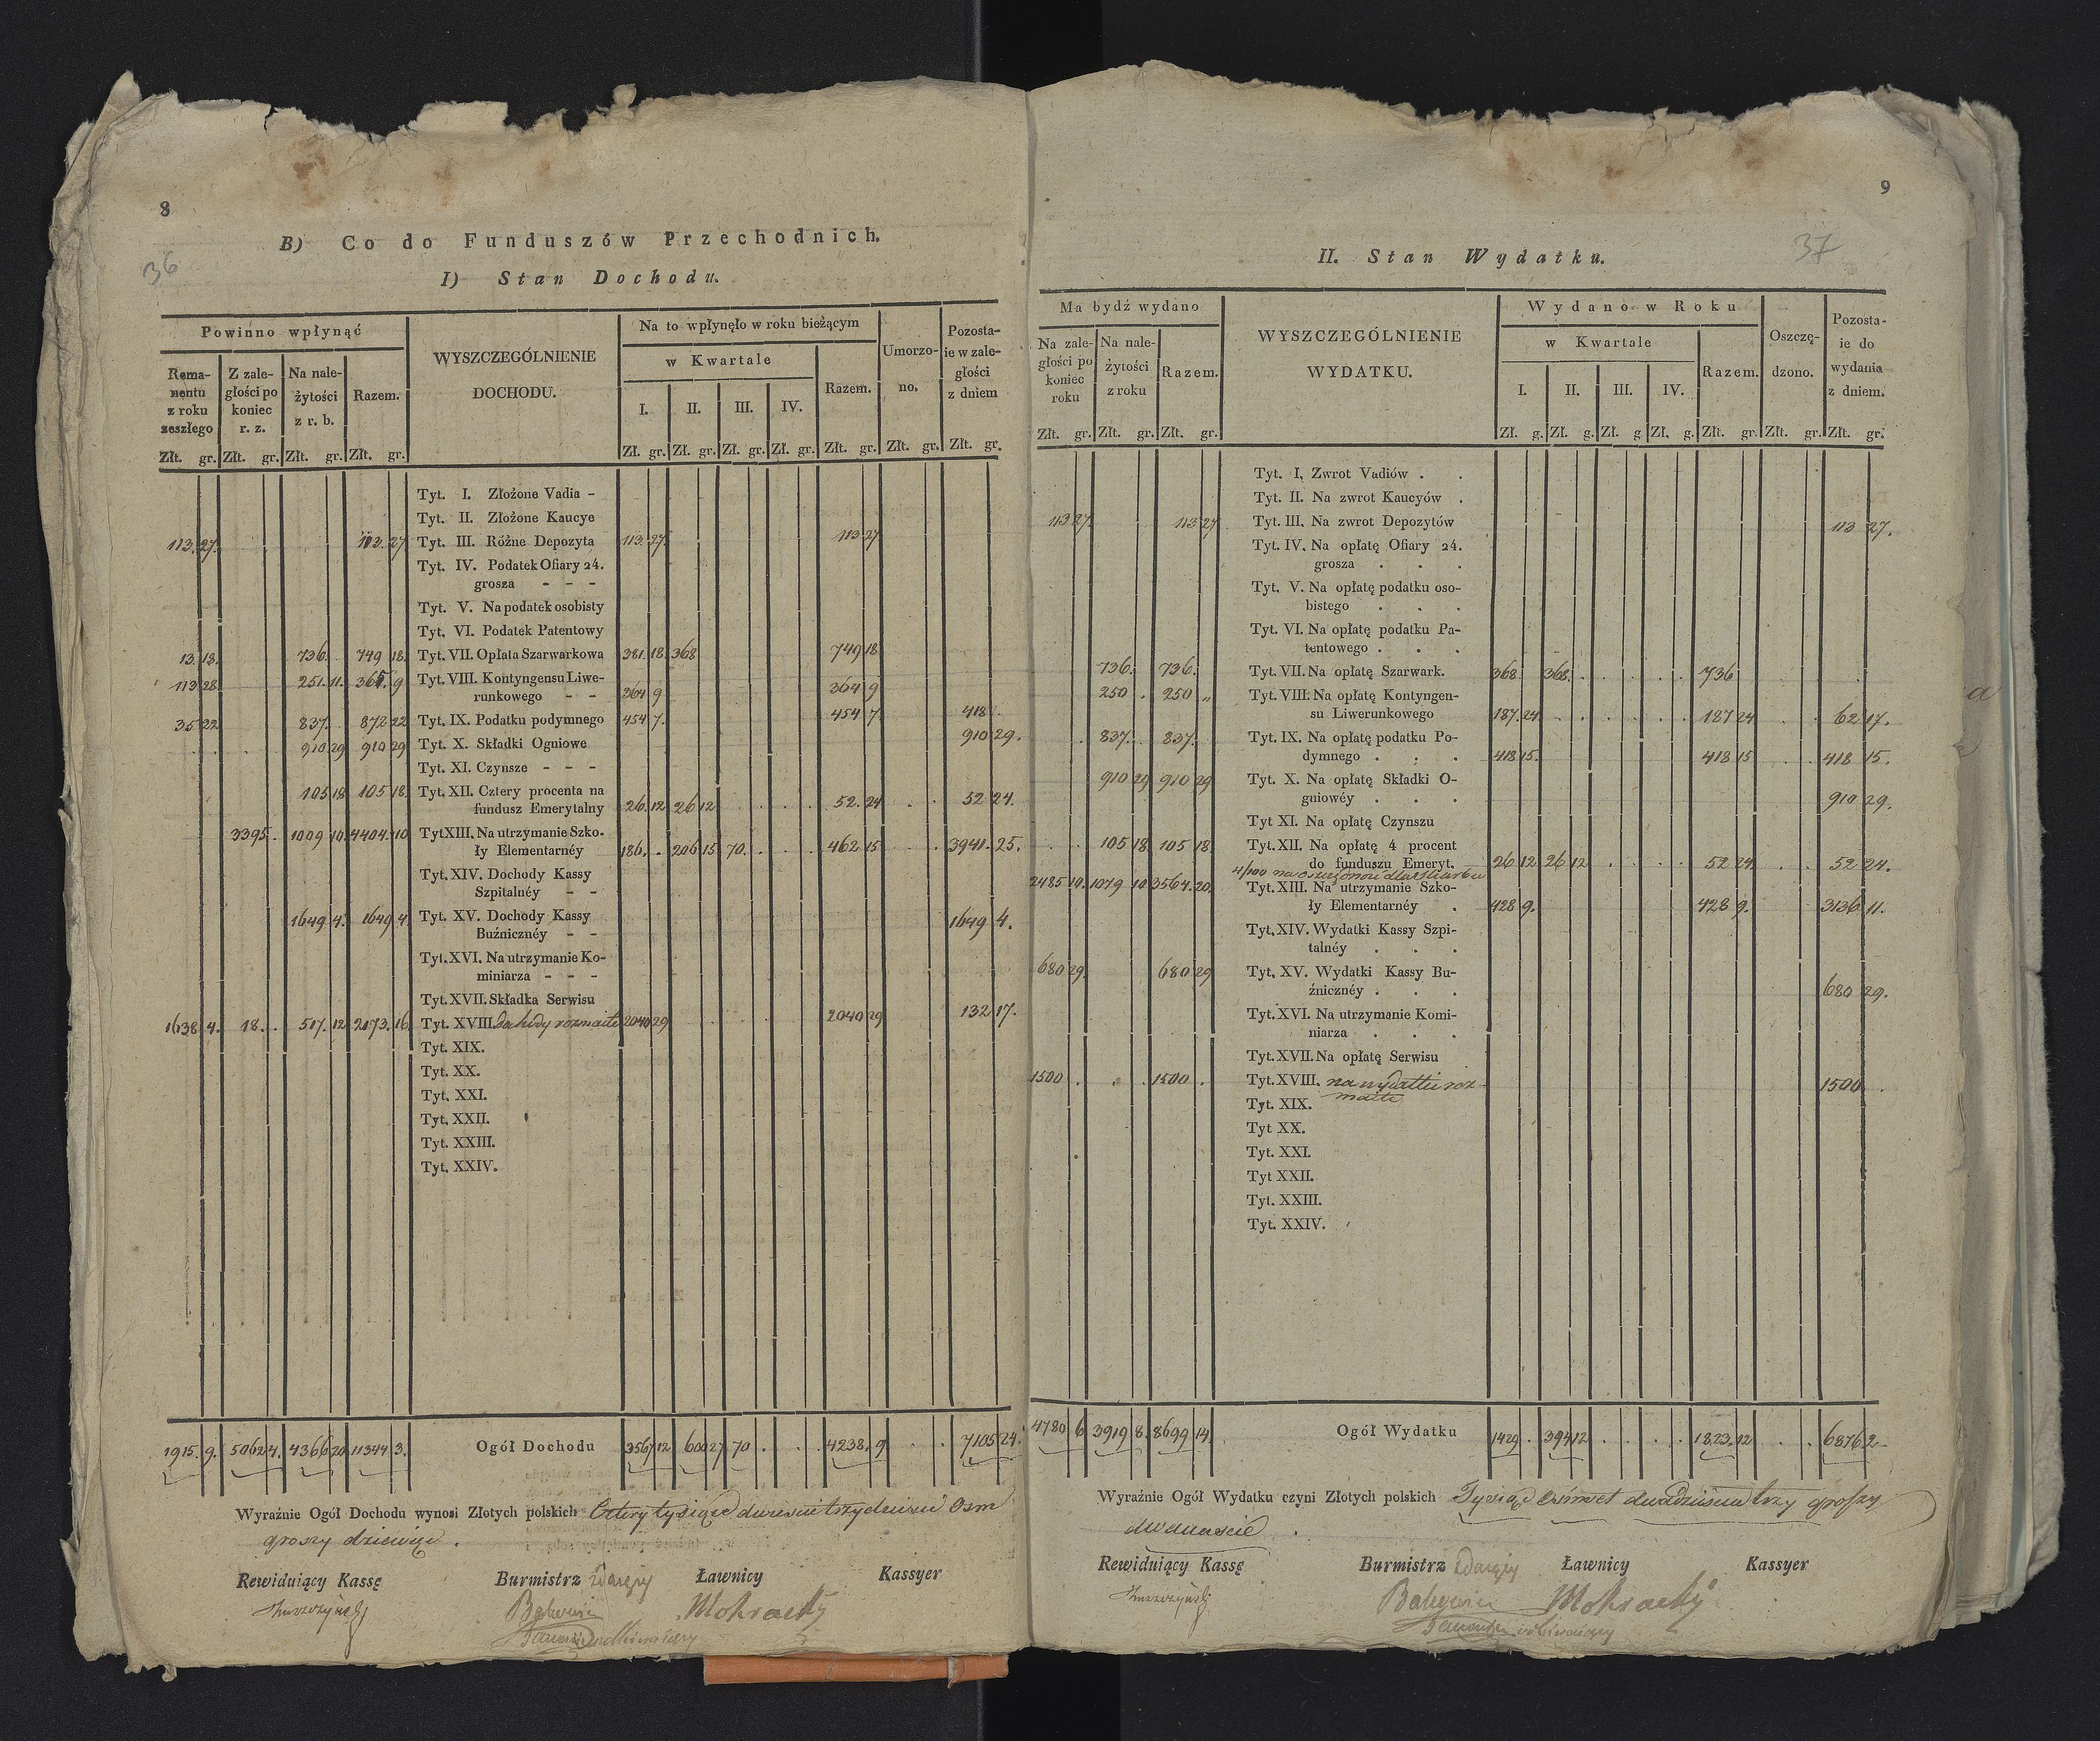 8
36
B) Co do Funduszów Przechodnich.
I) Stan Dochodu.
Powinno wpłynąć
WYSZCZEGÓLNIENIE
DOCHODU.
Na to wpłynęło w roku bieżącym
w Kwartale
Umorzo-
no.
Pozosta-
ie w zale-
głości
z dniem
Rema-
nentu
z roku
zeszłego
Z zale-
głości po
koniec
r. z.
Na nale-
żytości
z r. b.
Razem.
I. II. III. IV. Razem.
Złt. gr. Złt. gr. Złt. gr. Złt. gr. Zł. gr. Zł. gr. Zł. gr. Zł. gr. Złt. gr. Złt. gr. Złt. gr.
Tyt. I. Złożone Vadia -
Tyt. II. Złożone Kaucye
113. 27. 113. 27 Tyt. III. Różne Depozyta 113. 27. 113 27
Tyt. IV. Podatek Ofiary 24.
grosza - - -
Tyt. V. Na podatek osobisty
Tyt. VI. Podatek Patentowy
13. 18. 736. 749 18. Tyt. VII. Opłata Szarwarkowa 381. 18. 368 749 18
113 28 251. 11. 365. 9 Tyt. VIII. Kontyngensu Liwe-
runkowego - - 364 9 364 9
35 22 837. 872 22 Tyt. IX. Podatku podymnego 454 7. 454 7 418.
910 29 910 29 Tyt. X. Składki Ogniowe 910 29.
Tyt. XI. Czynsze - - -
105 18 105 18. Tyt. XII. Cztery procenta na
fundusz Emerytalny 26. 12 26 12 52. 24 52 24.
3395. 1009 10. 4404. 10 Tyt XIII. Na utrzymanie Szko-
ły Elementarnéy 186. 206 15 70. 462 15 3941. 25.
Tyt. XIV. Dochody Kassy
Szpitalnéy - -
1649 4. 1649 4. Tyt. XV. Dochody Kassy
Buźnicznéy - - 1649 4.
Tyt. XVI. Na utrzymanie Ko-
miniarza - - -
Tyt. XVII. Składka Serwisu
1638 4. 18. 517. 12 2173. 16 Tyt. XVIII. dochody rozmaite 2040 29 2040 29 132 17.
Tyt. XIX.
Tyt. XX.
Tyt. XXI.
Tyt. XXII.
Tyt. XXIII.
Tyt. XXIV.
1915. 9. 5062 4. 4366 20 11344 3. Ogół Dochodu 3567 12 600 27 70 4238. 9 7105 24.
Wyraźnie Ogół Dochodu wynosi Złotych polskich Cztery tysiące dwieście trzydzieści osm
groszy dziewięć.
Rewiduiący Kassę Burmistrz Ławnicy Kassyer
Mokracki
9
37
II. Stan Wydatku.
Ma bydź wydano
WYSZCZEGÓLNIENIE
WYDATKU.
Wydano w Roku
w Kwartale
Oszczę-
dzono.
Pozosta-
ie do
wydania
z dniem.
Na zale-
głości po
koniec
roku
Na nale-
żytości
z roku
Razem.
I. II. III. IV. Razem.
Złt. gr. Złt. gr. Złt. gr. Zł. g. Zł. g. Zł. g Zł. g. Złt. gr. Złt. gr. Złt. gr.
Tyt. I. Zwrot Vadiów . .
Tyt. II. Na zwrot Kaucyów .
113 27. 113 27 Tyt. III. Na zwrot Depozytów 113 27.
Tyt. IV. Na opłatę Ofiary 24.
grosza . . .
Tyt. V. Na opłatę podatku oso-
bistego . . .
Tyt. VI. Na opłatę podatku Pa-
tentowego . . .
736. 736. Tyt. VII. Na opłatę Szarwark. 368 368. 736
250 . 250 „ Tyt. VIII. Na opłatę Kontyngen-
su Liwerunkowego 187. 24. 187 24 62 17.
837. 837. Tyt. IX. Na opłatę podatku Po-
dymnego . . . 418 15. 418 15 418 15.
910 29 910 29 Tyt. X. Na opłatę Składki O-
gniowéy . . . 910 29.
Tyt XI. Na opłatę Czynszu
105 18 105 18 Tyt. XII. Na opłatę 4 procent
do funduszu Emeryt. 26 12 26 12 52 24. 52 24.
2485 10. 1079 10 3564. 20. Tyt. XIII. Na utrzymanie Szko-
ły Elementarnéy . 428 9. 428 9. 3136 11.
Tyt. XIV. Wydatki Kassy Szpi-
talnéy . . .
680 29. 680 29 Tyt. XV. Wydatki Kassy Bu-
źnicznéy . . . 680 29.
Tyt. XVI. Na utrzymanie Komi-
niarza . . .
Tyt. XVII. Na opłatę Serwisu
1500 . 1500 . Tyt. XVIII. na wydatki roz- 1500 .
maite
Tyt. XIX.
Tyt XX.
Tyt. XXI.
Tyt XXII.
Tyt. XXIII.
Tyt. XXIV.
4780 6 3919 8. 8699 14. Ogół Wydatku 1429 . 394 12 1823. 12 6876 2.
Wyraźnie Ogół Wydatku czyni Złotych polskich Tysiąc osimset dwadzieścia trzy groszy
dwanaście.
Rewiduiący Kassę Burmistrz Ławnicy Kassyer
Mokracki